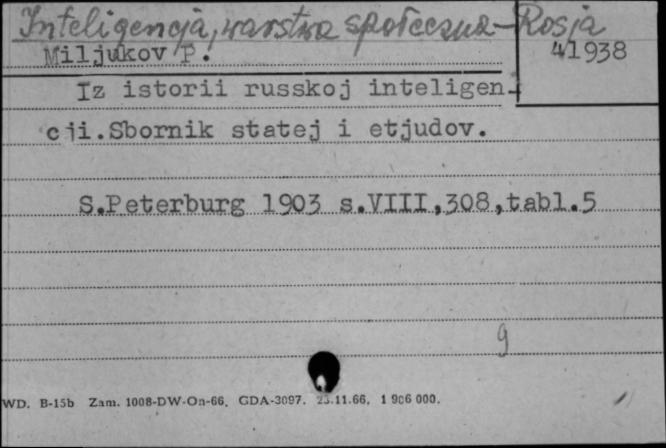 Inteligencja, warstwa społeczna - Rosja
Miljukov P.
41938
Iz istorii russkoj inteligen-
cji.Sbornik statej i etjudov.
S.Peterburg 1903 s.VIII,308,tabl.5
g
WD. B-15b Zam. 1008-DW-On-66. GDA-3097. 23.11.66. 1 906 000.